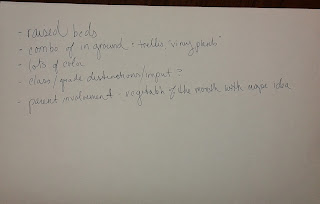 - raised beds
- combo of in ground + trellis "viney plants"
- lots of color
- class/grade destinations/input?
- parent involvement - vegetable of the month with recipe idea